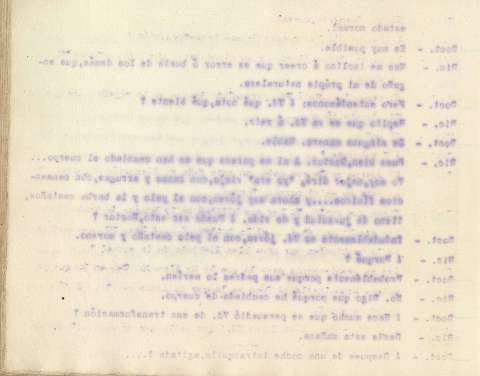 estado normal
Doct. - Es muy posible.
Ric. - me inclino á creer que es error ó burla de los demás, que en-
gaño de mi propia naturaleza.
Doct. - Pero entendámonos: ¿ Vd. qué nota, qué siente ?
Ric. - Repito que se va Vd. á reir.
Doct. - De ninguna manera. Hable.
Ric. - Pues bien, Doctor. A mí me parece que me han cambiado el cuerpo...
Yo soy, mejor diré, "yo era" viejo, con canas y arrugas, con
físicos..., y ahora soy jóven, con el pelo y la barba castaños,
lleno de juventud y de vida. ¿ Puede ser esto, Doctor ?
Doct. - Indudablemente es Vd. jóven, con el pelo castaño y moreno.
Ric. - ¿ Porqué ?
Doct. - Probablemente porque sus padres lo serían.
Ric. - No. Digo que porqué he cambiado de cuerpo.
Doct. - ¿ Hace mucho que se persuadió Vd. de esa transformación ?
Ric. - Desde esta mañana.
Doct. - ¿ Despues de una noche intranquila, agitada ?...